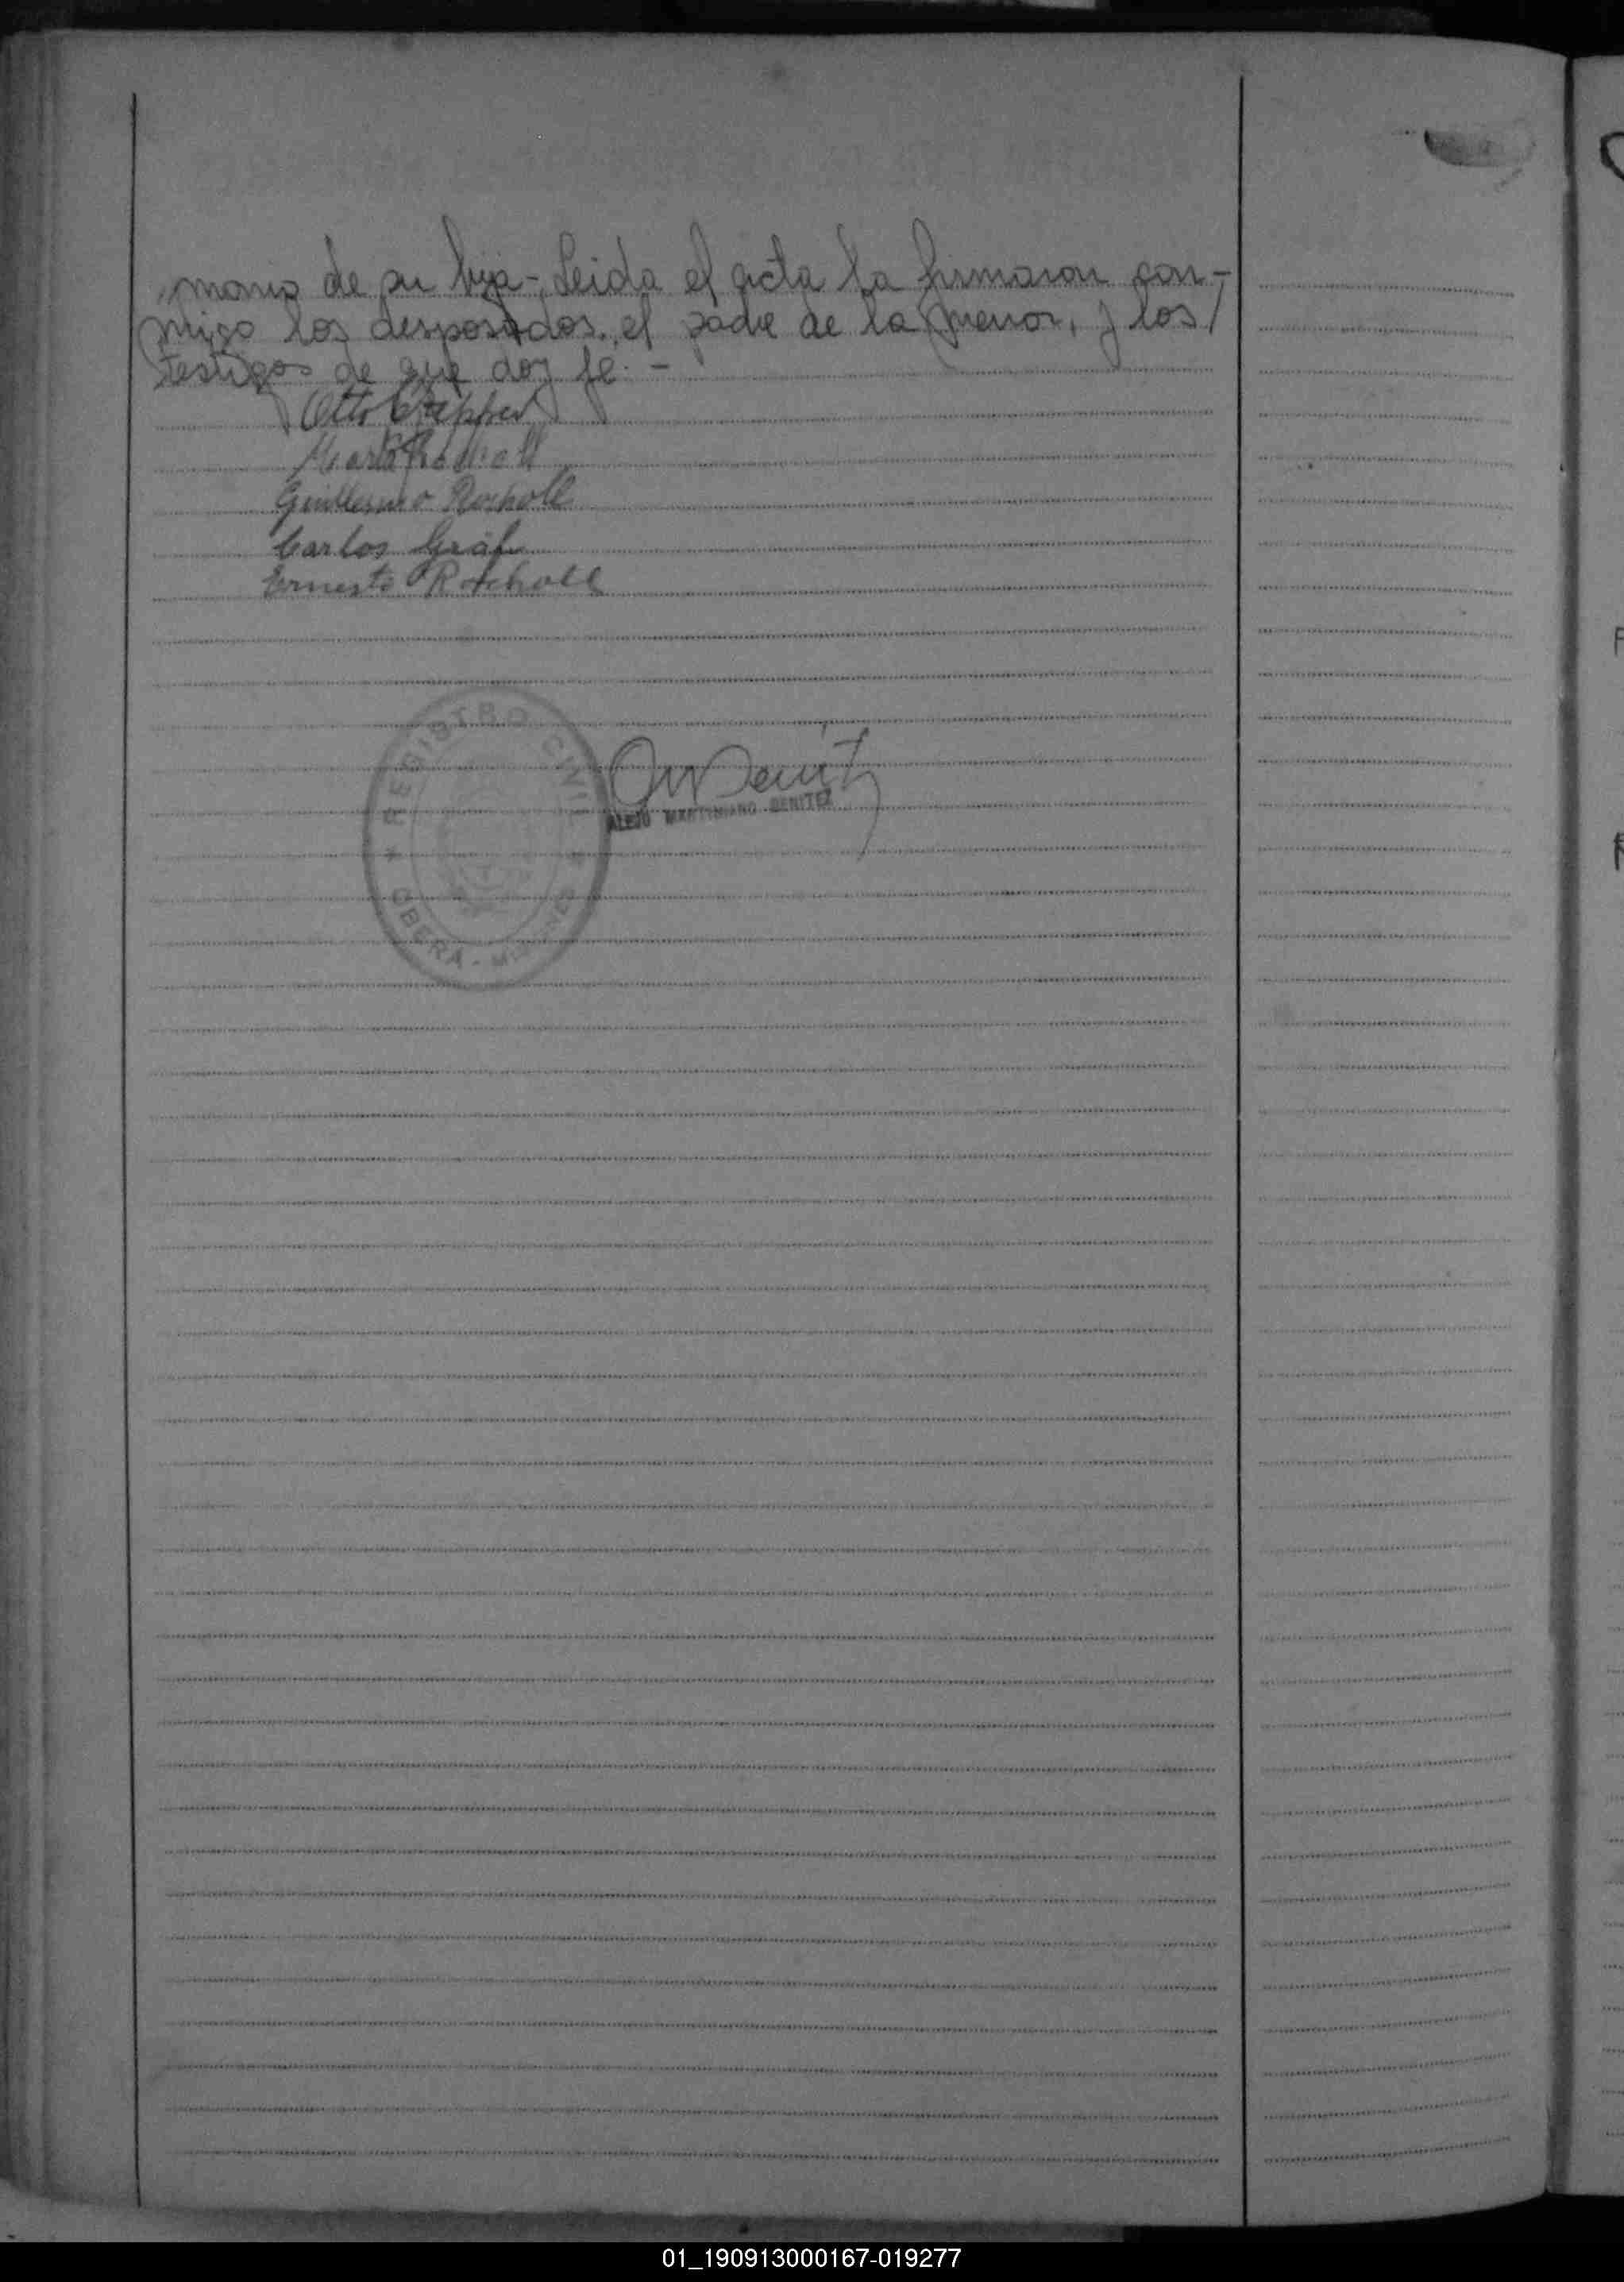 monio de su hija-, Leida el acta la firmaron con-
migo los desposados, el padre de la menor, y los
testigos de que doy fe. -
Otto
Guillermo Rocholl
Carlos Gräf
Ernesto Rocholl
REGISTRO CIVIL
ALEJO MARTINIANO BENITEZ
OBERA - MISIONES
01_190913000167-019277